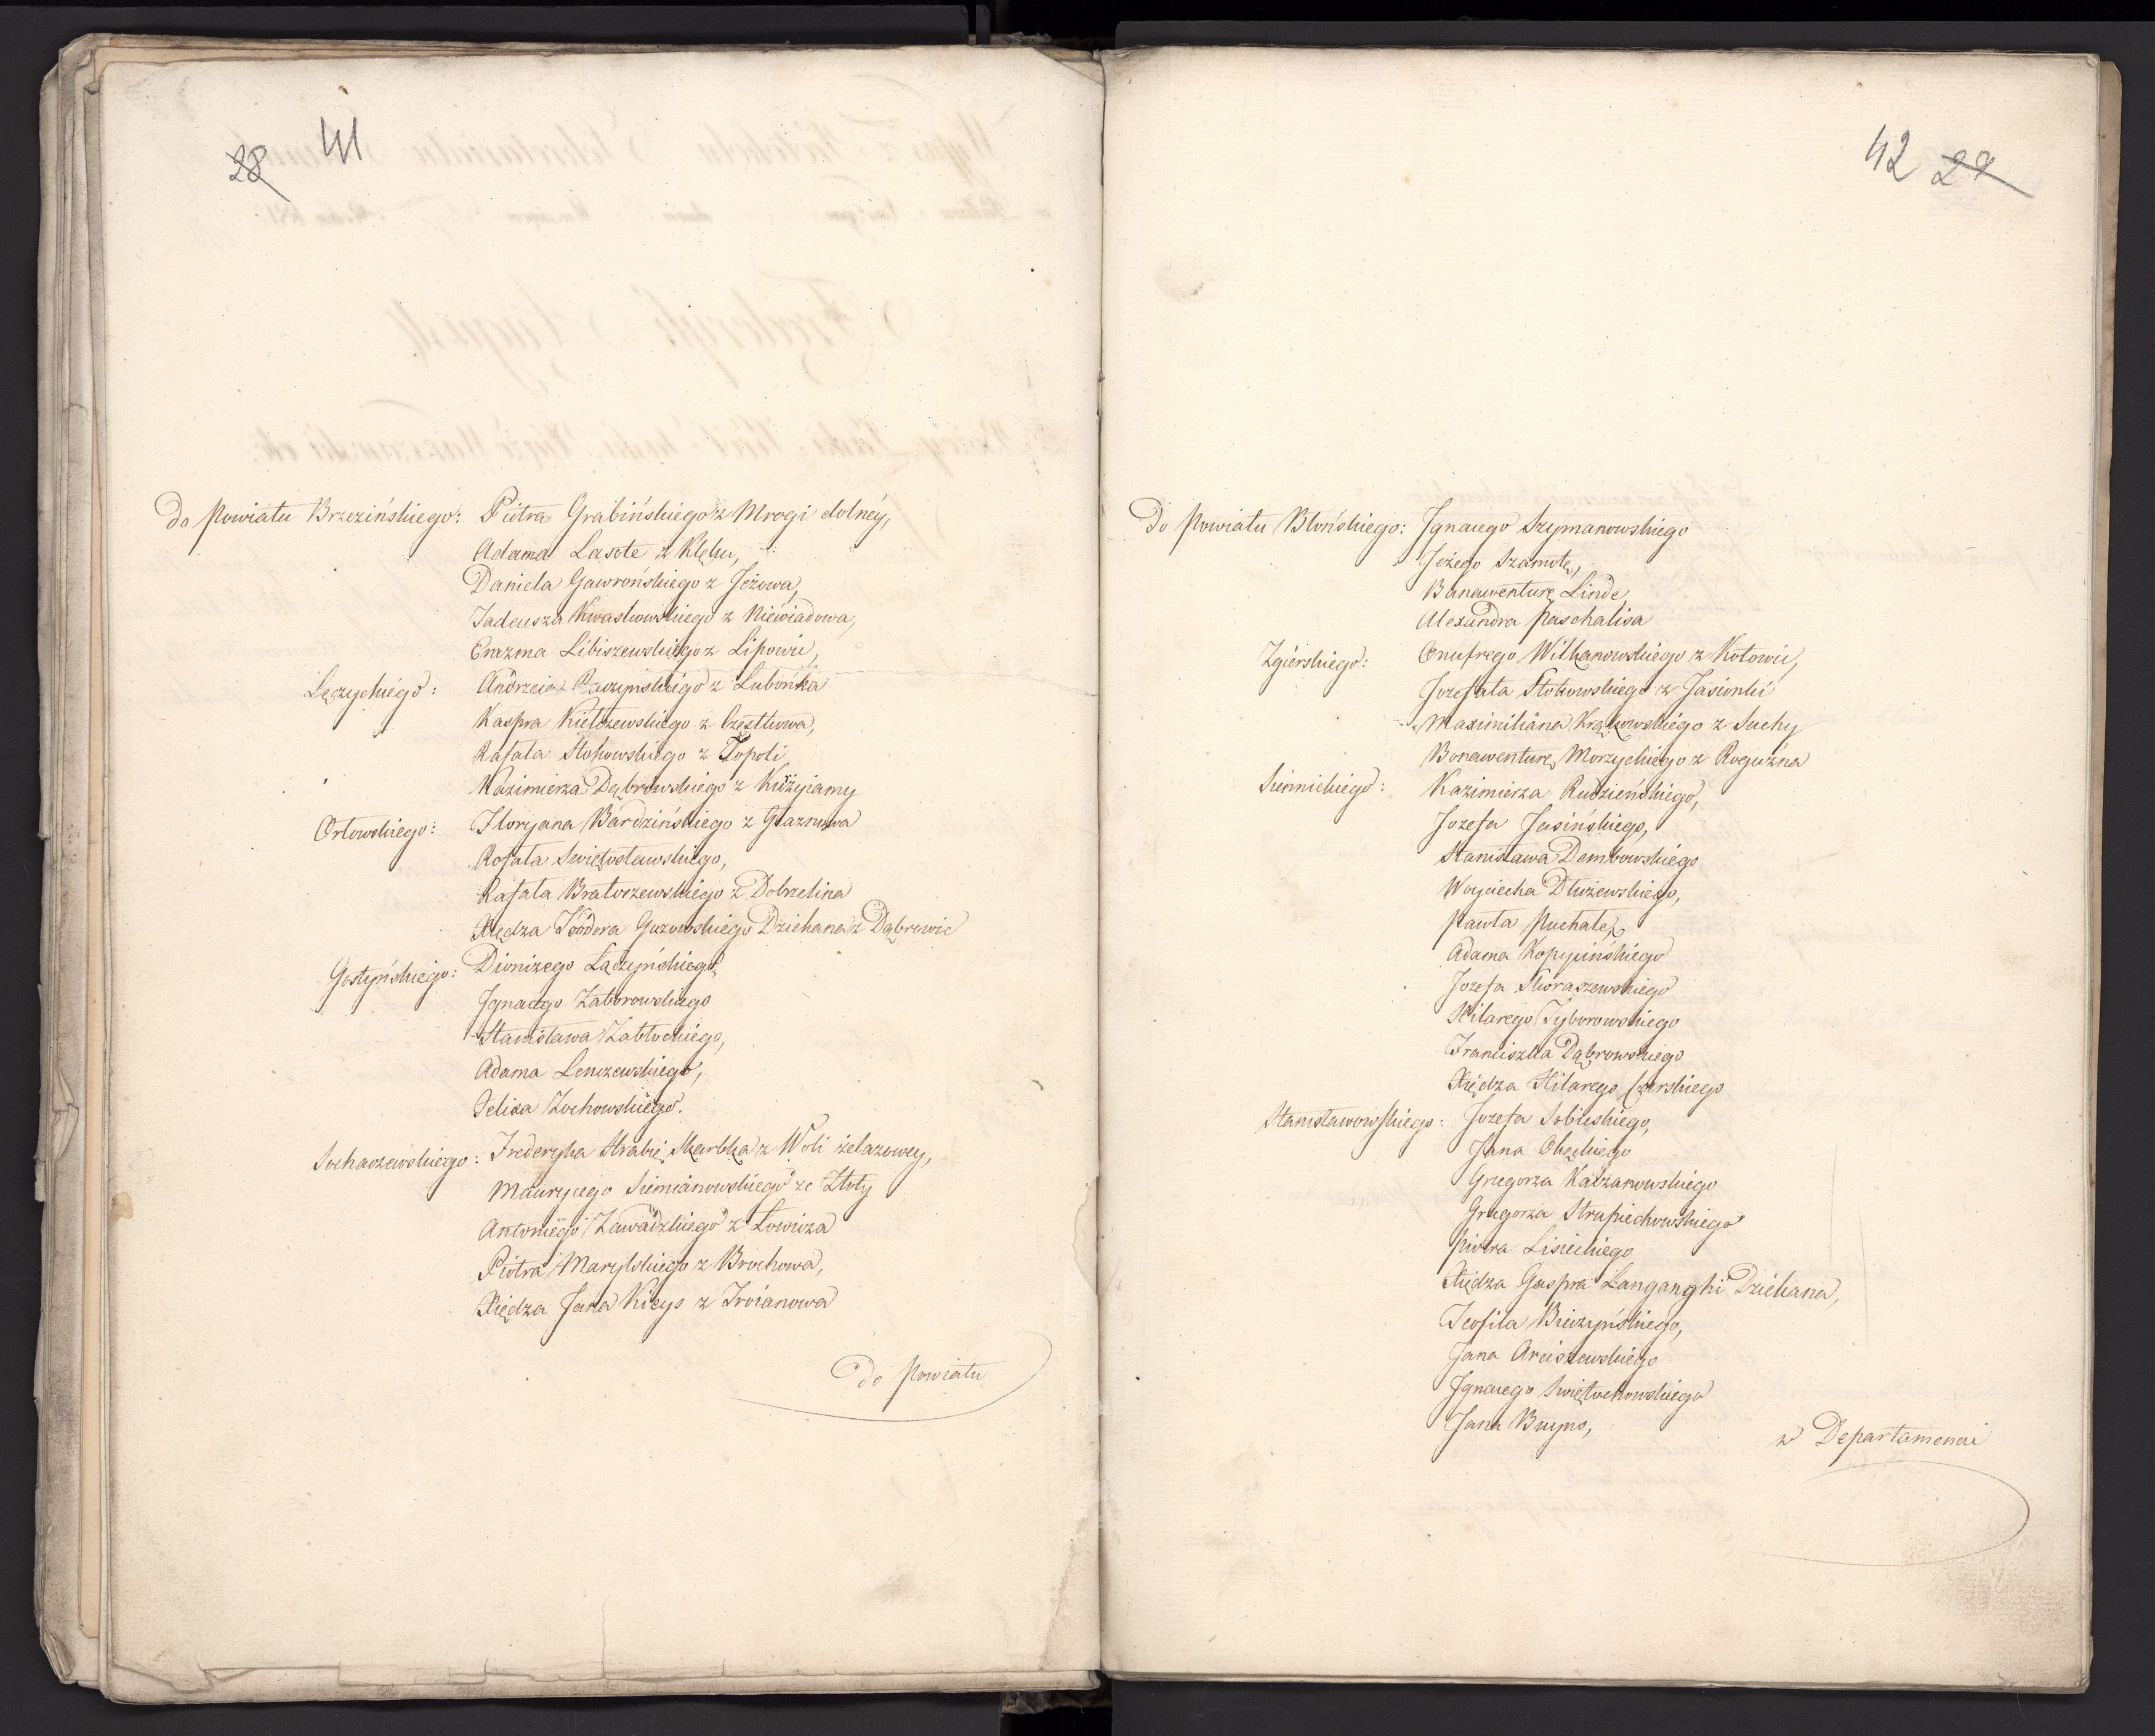 28 41
do Powiatu Brzezińskiego: Piotra Grabińskiego z Mrogi dolnéy,
Adama Lasotę z Klęku,
Daniela Gawrońskiego z Jeżowa,
Tadeusza Kwaskowskiego z Niewiadowa,
Erazma Libiszewskiego z Lipowii,
Łęczyckiego: Andrzeia Raczyńskiego z Lubońka
Kaspra Kiełczewskiego z Częstkowa,
Rafała Stokowskiego z Topoli
Kazimierza Dąbrowskiego z
Orłowskiego: Floryana Bardzińskiego z Głaznowa
Rafała Swiętosławskiego,
Rafała Bratoszewskiego z Dobrzelina
Xiędza Teodora Guzowskiego Dziekana z Dąbrowic
Gostyńskiego: Dionizego Łączyńskiego
Ignacego Zaborowskiego
Stanisława Zabłockiego,
Adama Lenczewskiego,
Felixa Zochowskiego.
Sochaczewskiego: Fryderyka Hrabię Skarbka z Woli żelazowey,
Maurycego Siemianowskiego ze Złoty
Antoniego Zawadzkiego z Łowicza
Piotra Marylskiego z Brochowa,
Xiędza Jana Kieys z Troianowa
do Powiatu
42 29
Do Powiatu Błońskiego: Ignacego Szymanowskiego
Jeżego Szamotę,
Bonawenturę Linde,
Alexandra Paschalisa
Zgierskiego: Onufrego Wilkanowskiego z Kotowic,
Jozefata Stokowskiego z Jasionki
Maximiliana Krąkowskiego z Suchy
Bonawenturę Morzyckiego z Roguźna
Siennickiego: Kazimierza Rudzieńskiego,
Jozefa Jasińskiego,
Stanisława Dembowskiego
Woyciecha Dłużewskiego,
Pawła Puchałę,
Adama Kopycińskiego
Jozefa Skoraszewskiego
Hilarego Tyborowskiego
Franciszka Dąbrowskiego
Xiędza Hilarego Czerskiego
Stanisławowskiego: Jozefa Sobieskiego,
Jana Okęckiego
Grzegorza Kaczanowskiego
Grzegorza Strupiechowskiego
Piotra Lisieckiego
Xiędza Gaspra Langanghi Dziekana,
Teofila Bieczyńskiego,
Jana Arciszewskiego
Ignacego Swiętochowskiego
Jana Buyno,
w Departamencie